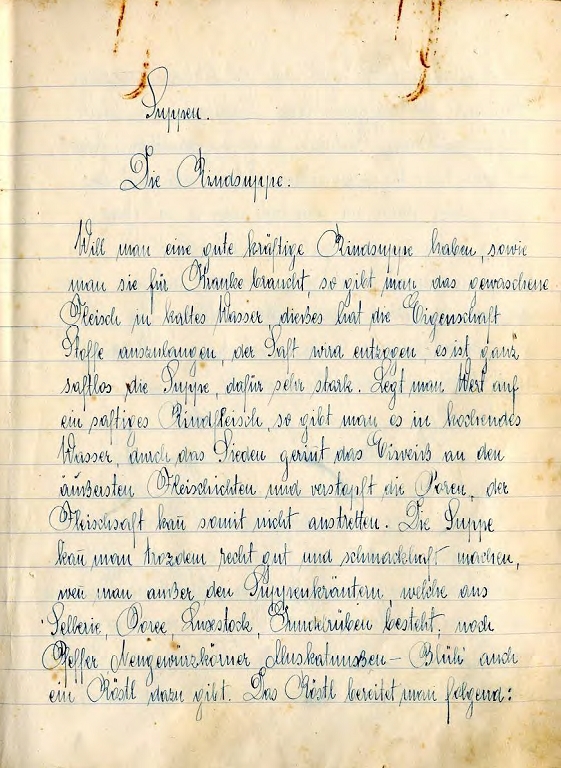 Suppen.
Die Rindsuppe.
Will man eine gute kräftige Rindsuppe haben, sowie
man sie für Kranke braucht, so gibt man das gewaschene
Fleisch in kaltes Wasser dieses hat die Eigenschaft
Stoffe auszulaugen, der Saft wird entzogen es ist ganz
saftlos die Suppe, dafür sehr stark. Legt man Wert auf
ein saftiges Rindfleisch, so gibt man es in kochendes
Wasser, durch das Sieden gerin̄t das Eiweiß an den
äußersten Fleischichten und verstopft die Poren, der
Fleischsaft kan̄ somit nicht austretten. Die Suppe
kan̄ man trozdem recht gut und schmackhaft machen,
wen̄ man außer den Suppenkräutern, welche aus
Sellerie, Poree Lusestock, besteht, noch
Pfeffer Neugewürzkörner Muskatnußen - Blüh auch
ein Röstl dazu gibt. Das Röstl bereitet man folgend: